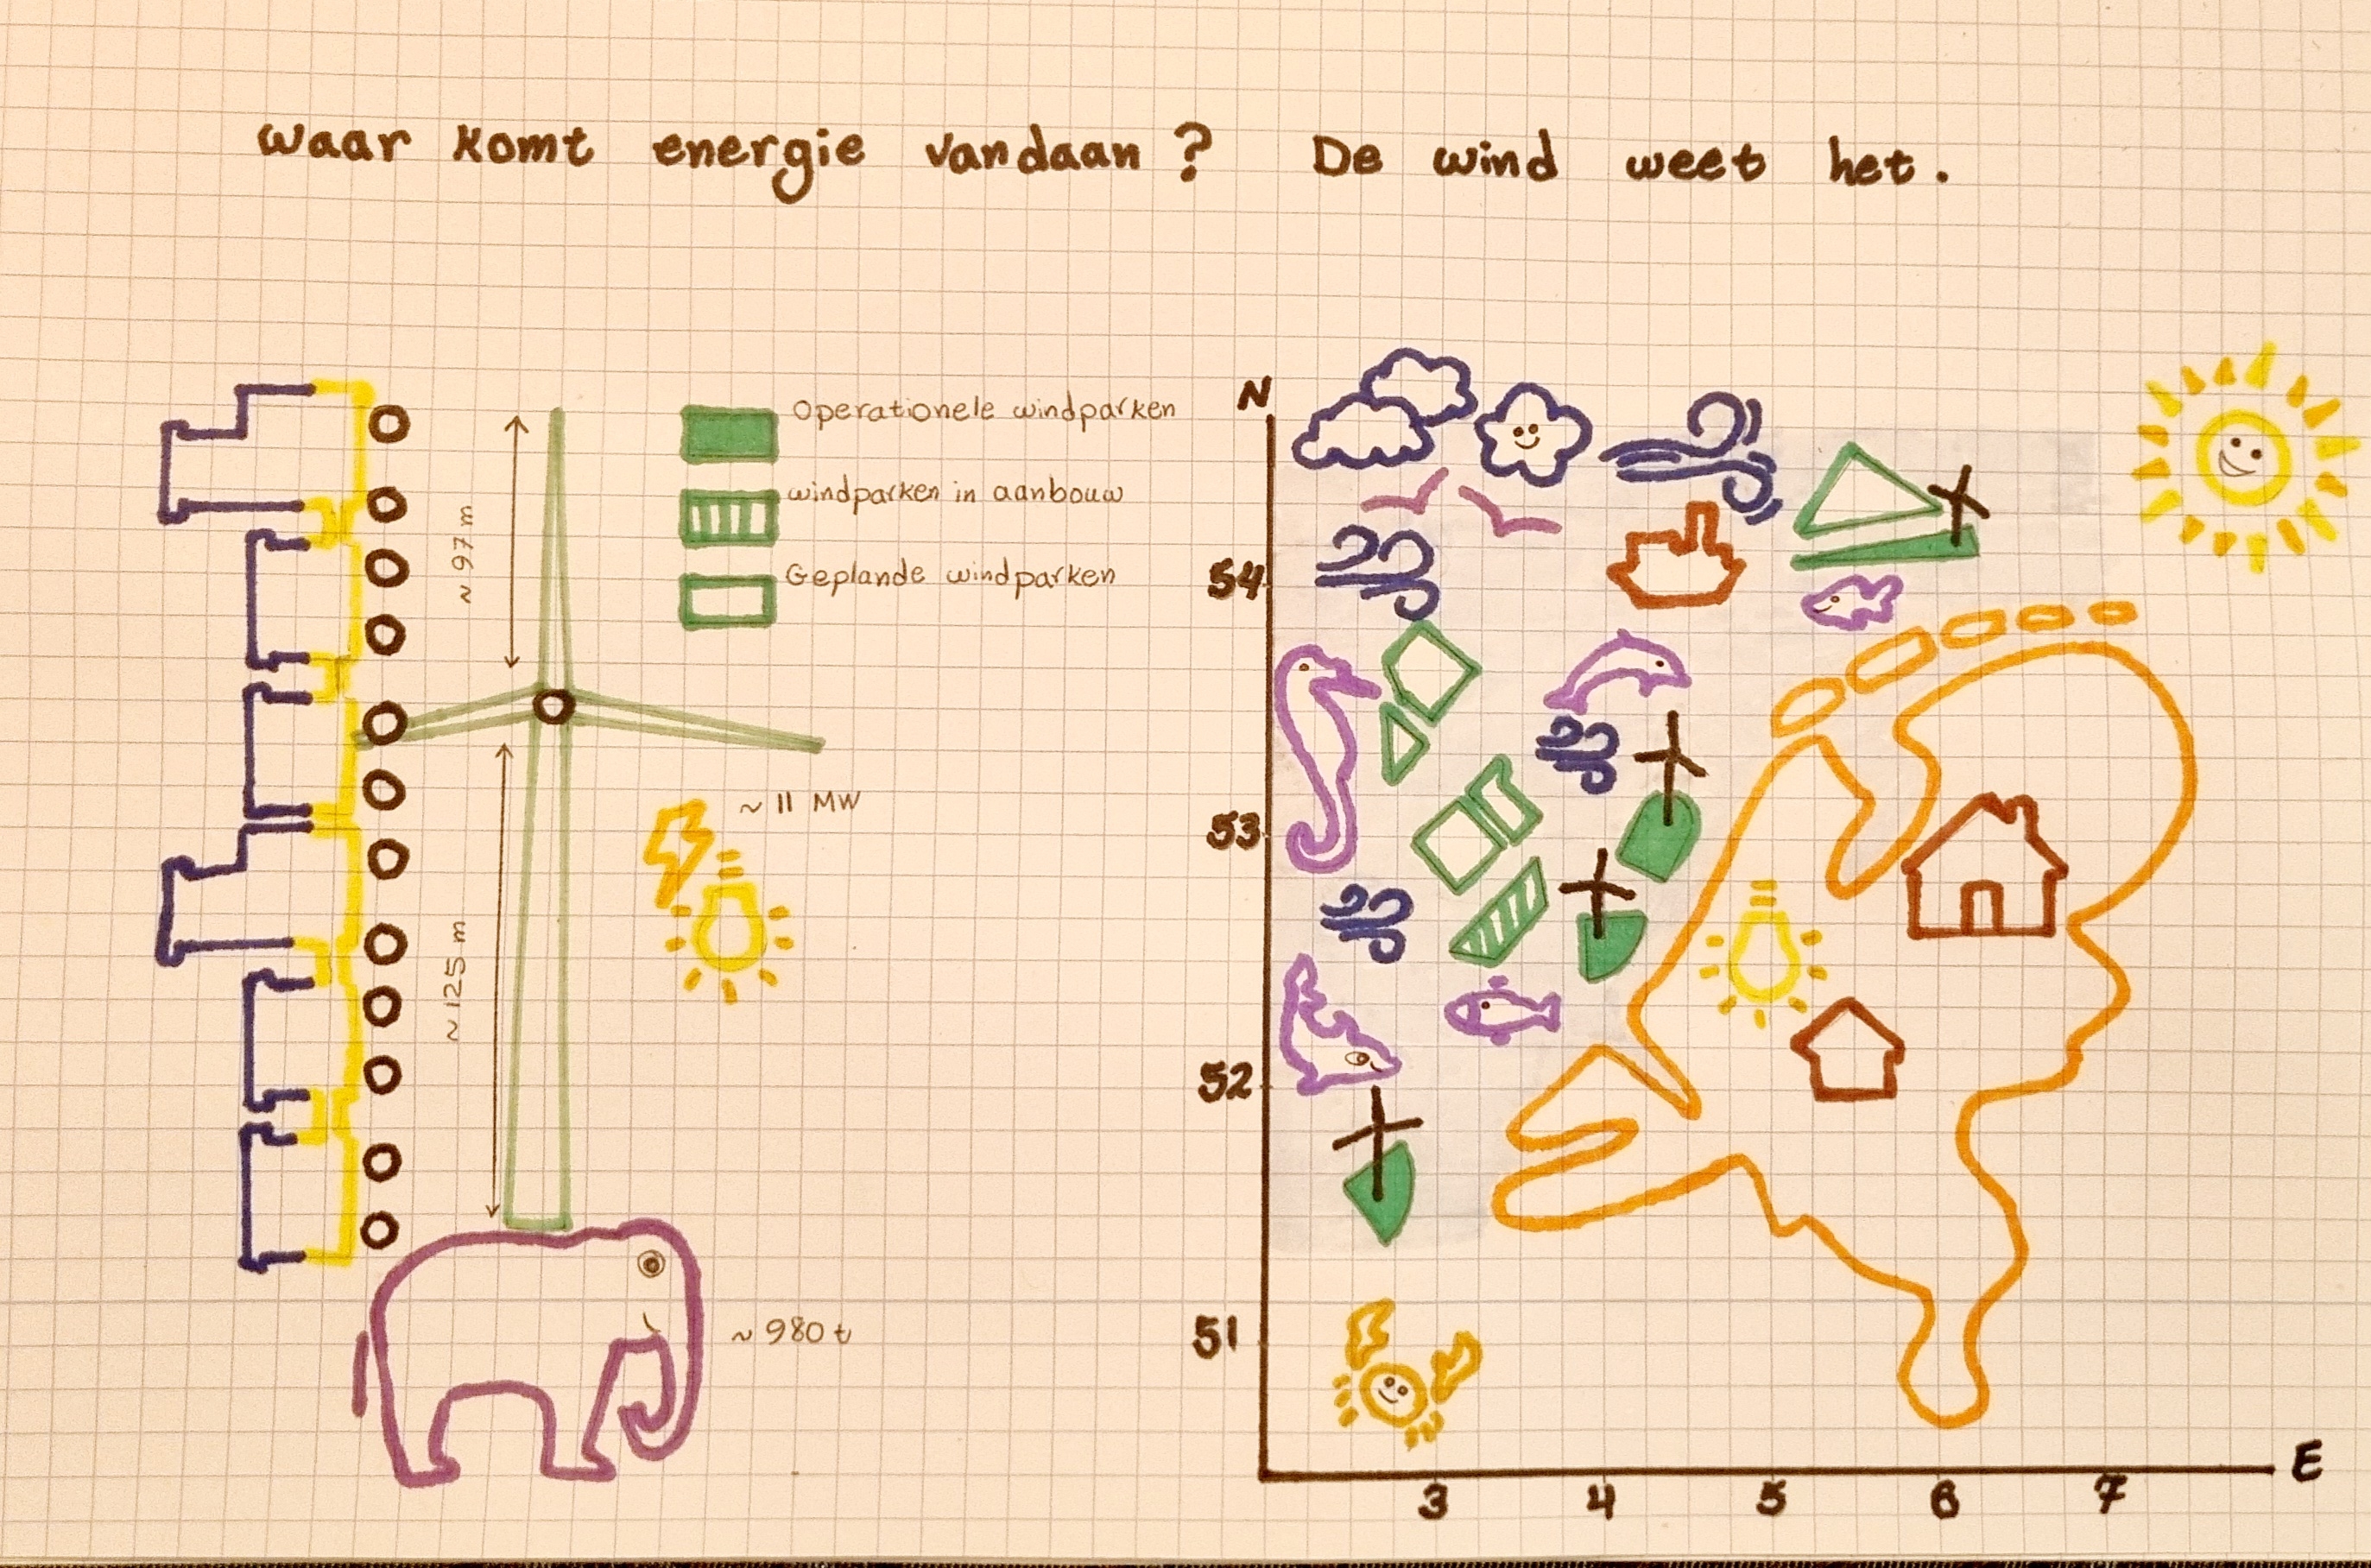 waar komt energie vandaan? De wind weet het.
~ 97 m
~ 125 m
Operationele windparken
windparken in aanbouw
Geplande windparken
~ 11 MW
~ 980 t
N
54
53
52
51
3 4 5 6 7
E